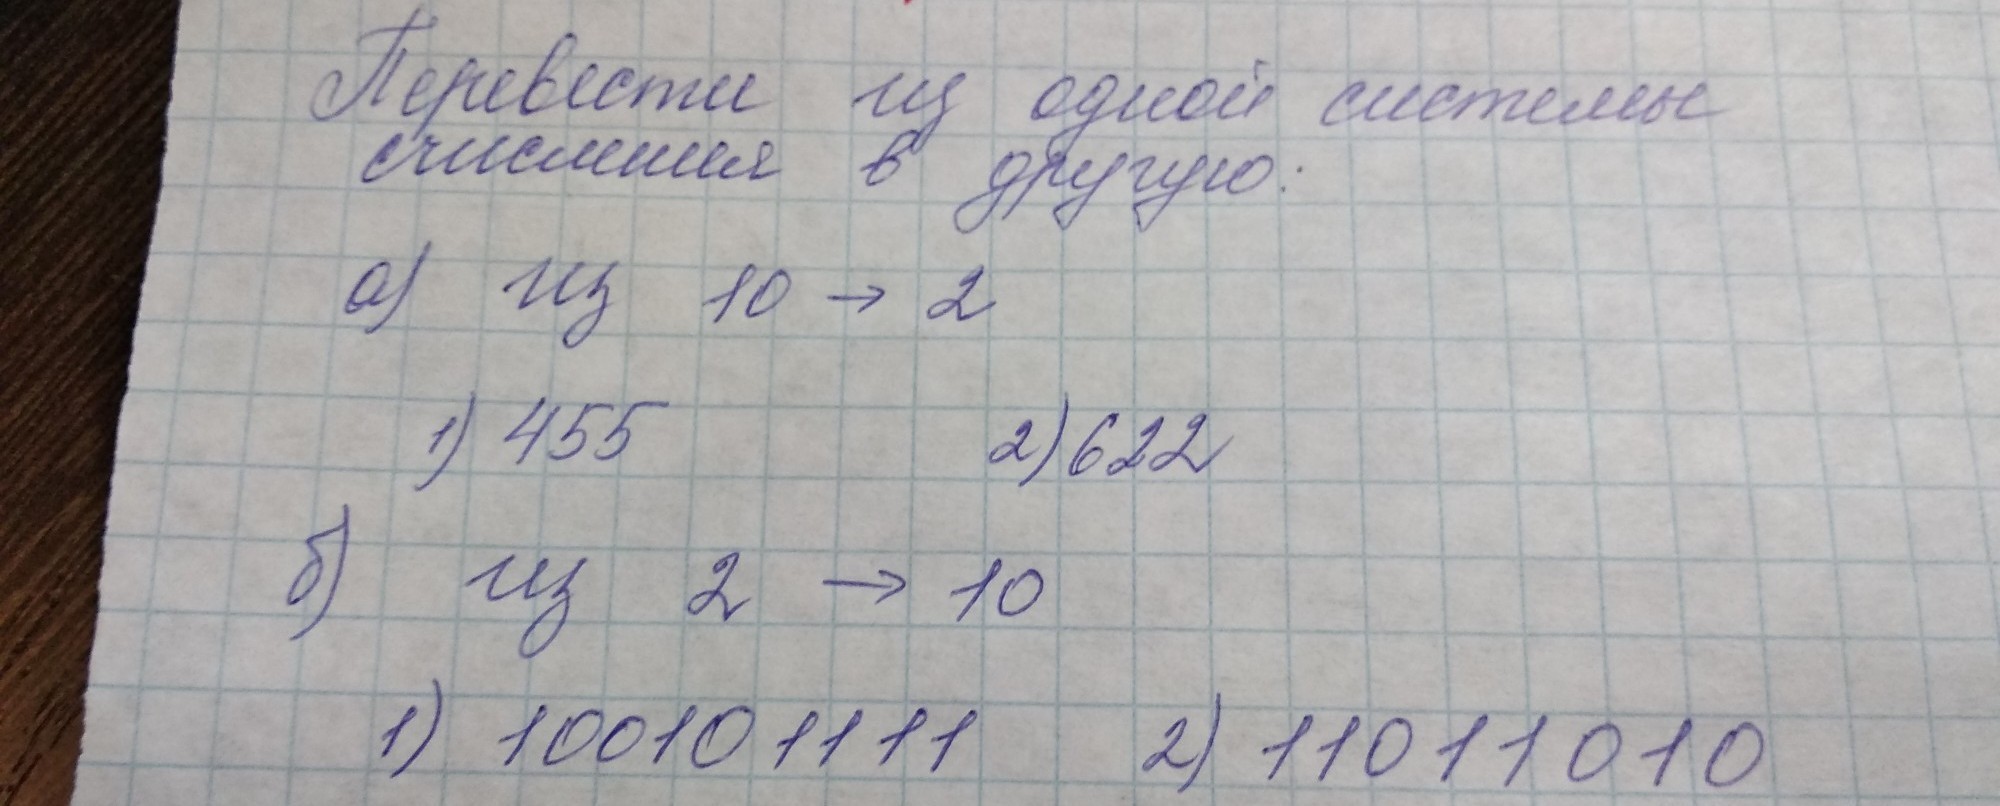 Перевести из одной системы
счисления в другую:
а) из 10 → 2
1) 455 2) 622
б) из 2 → 10
1) 100101111 2) 11011010